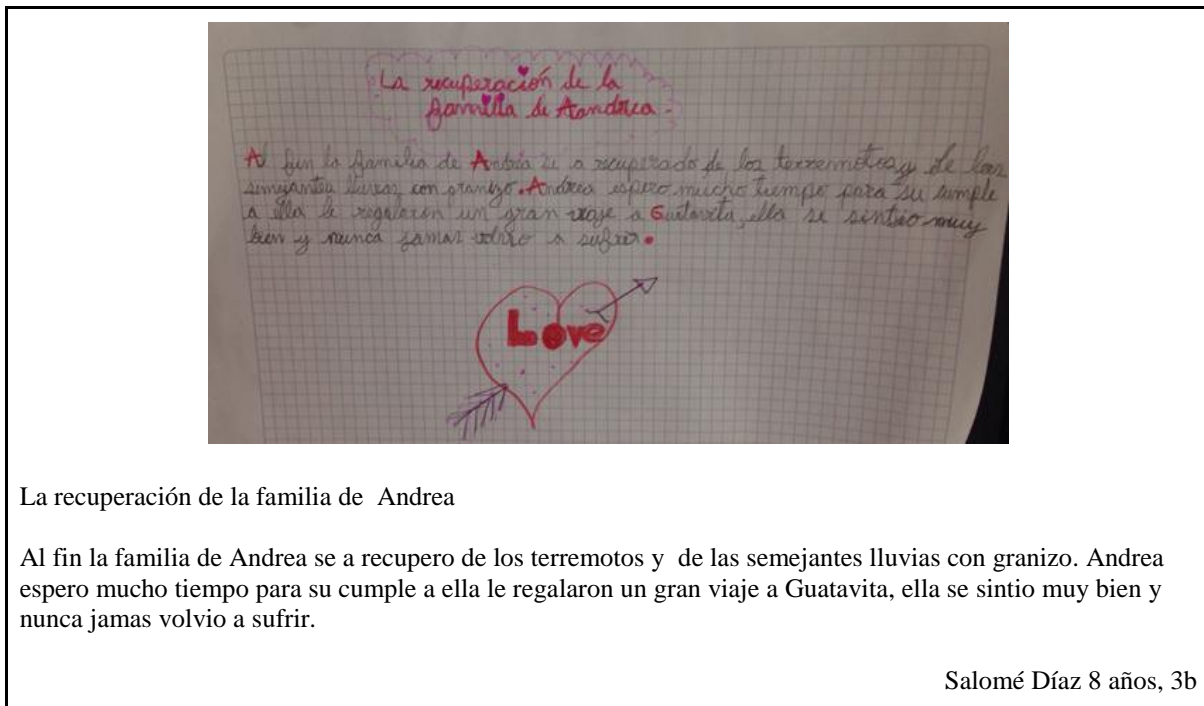 La recuperación de la
familia de Aandrea
Al fin la familia de Andrea se a recuperado de los terremotos y de las
semejantes lluvias con granizo. Andrea espero mucho tiempo para su cumple
a ella le regalaron un gran viaje a Guatavita, ella se sintio muy
bien y nunca jamas volvio a sufrir.
Love
La recuperación de la familia de Andrea
Al fin la familia de Andrea se a recupero de los terremotos y de las semejantes lluvias con granizo. Andrea
espero mucho tiempo para su cumple a ella le regalaron un gran viaje a Guatavita, ella se sintio muy bien y
nunca jamas volvio a sufrir.
Salomé Díaz 8 años, 3b